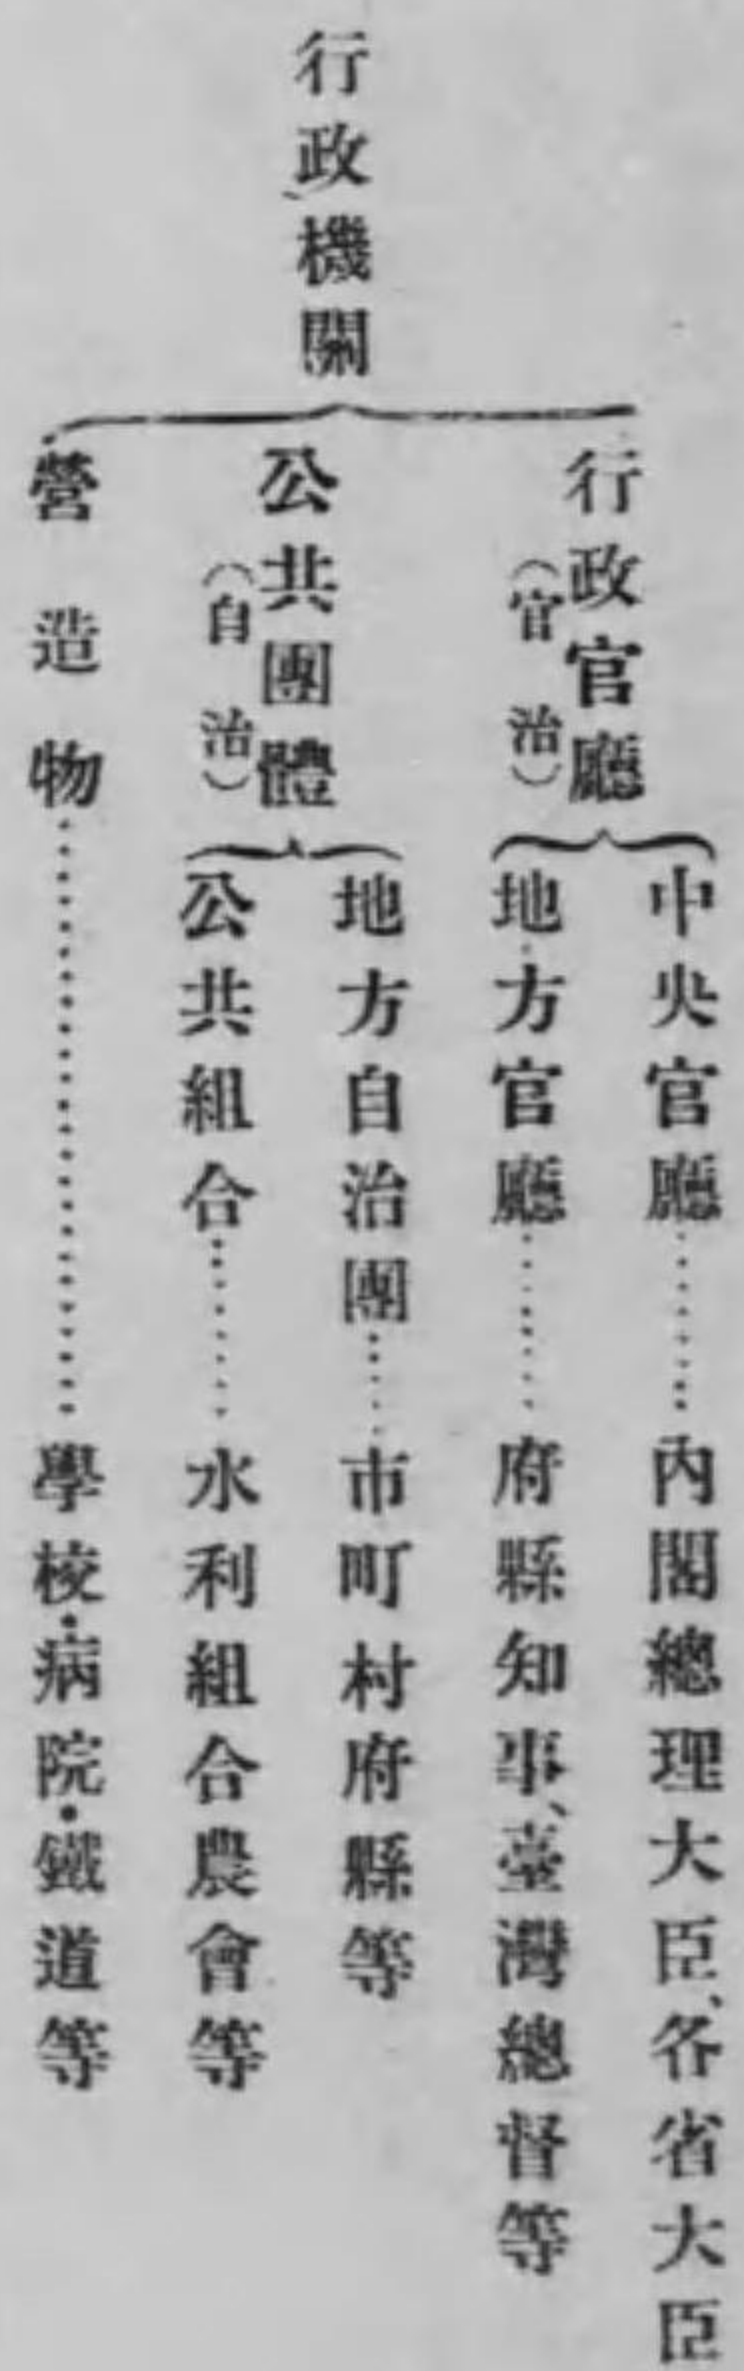 行政機關
行政官廳
（官治）
中央官廳………內閣總理大臣、各省大臣
地方官廳………府縣知事、臺灣總督等
公共團體
（自治）
地方自治團……市町村府縣等
公共組合………水利組合農會等
營造物……………………學校・病院・鐵道等